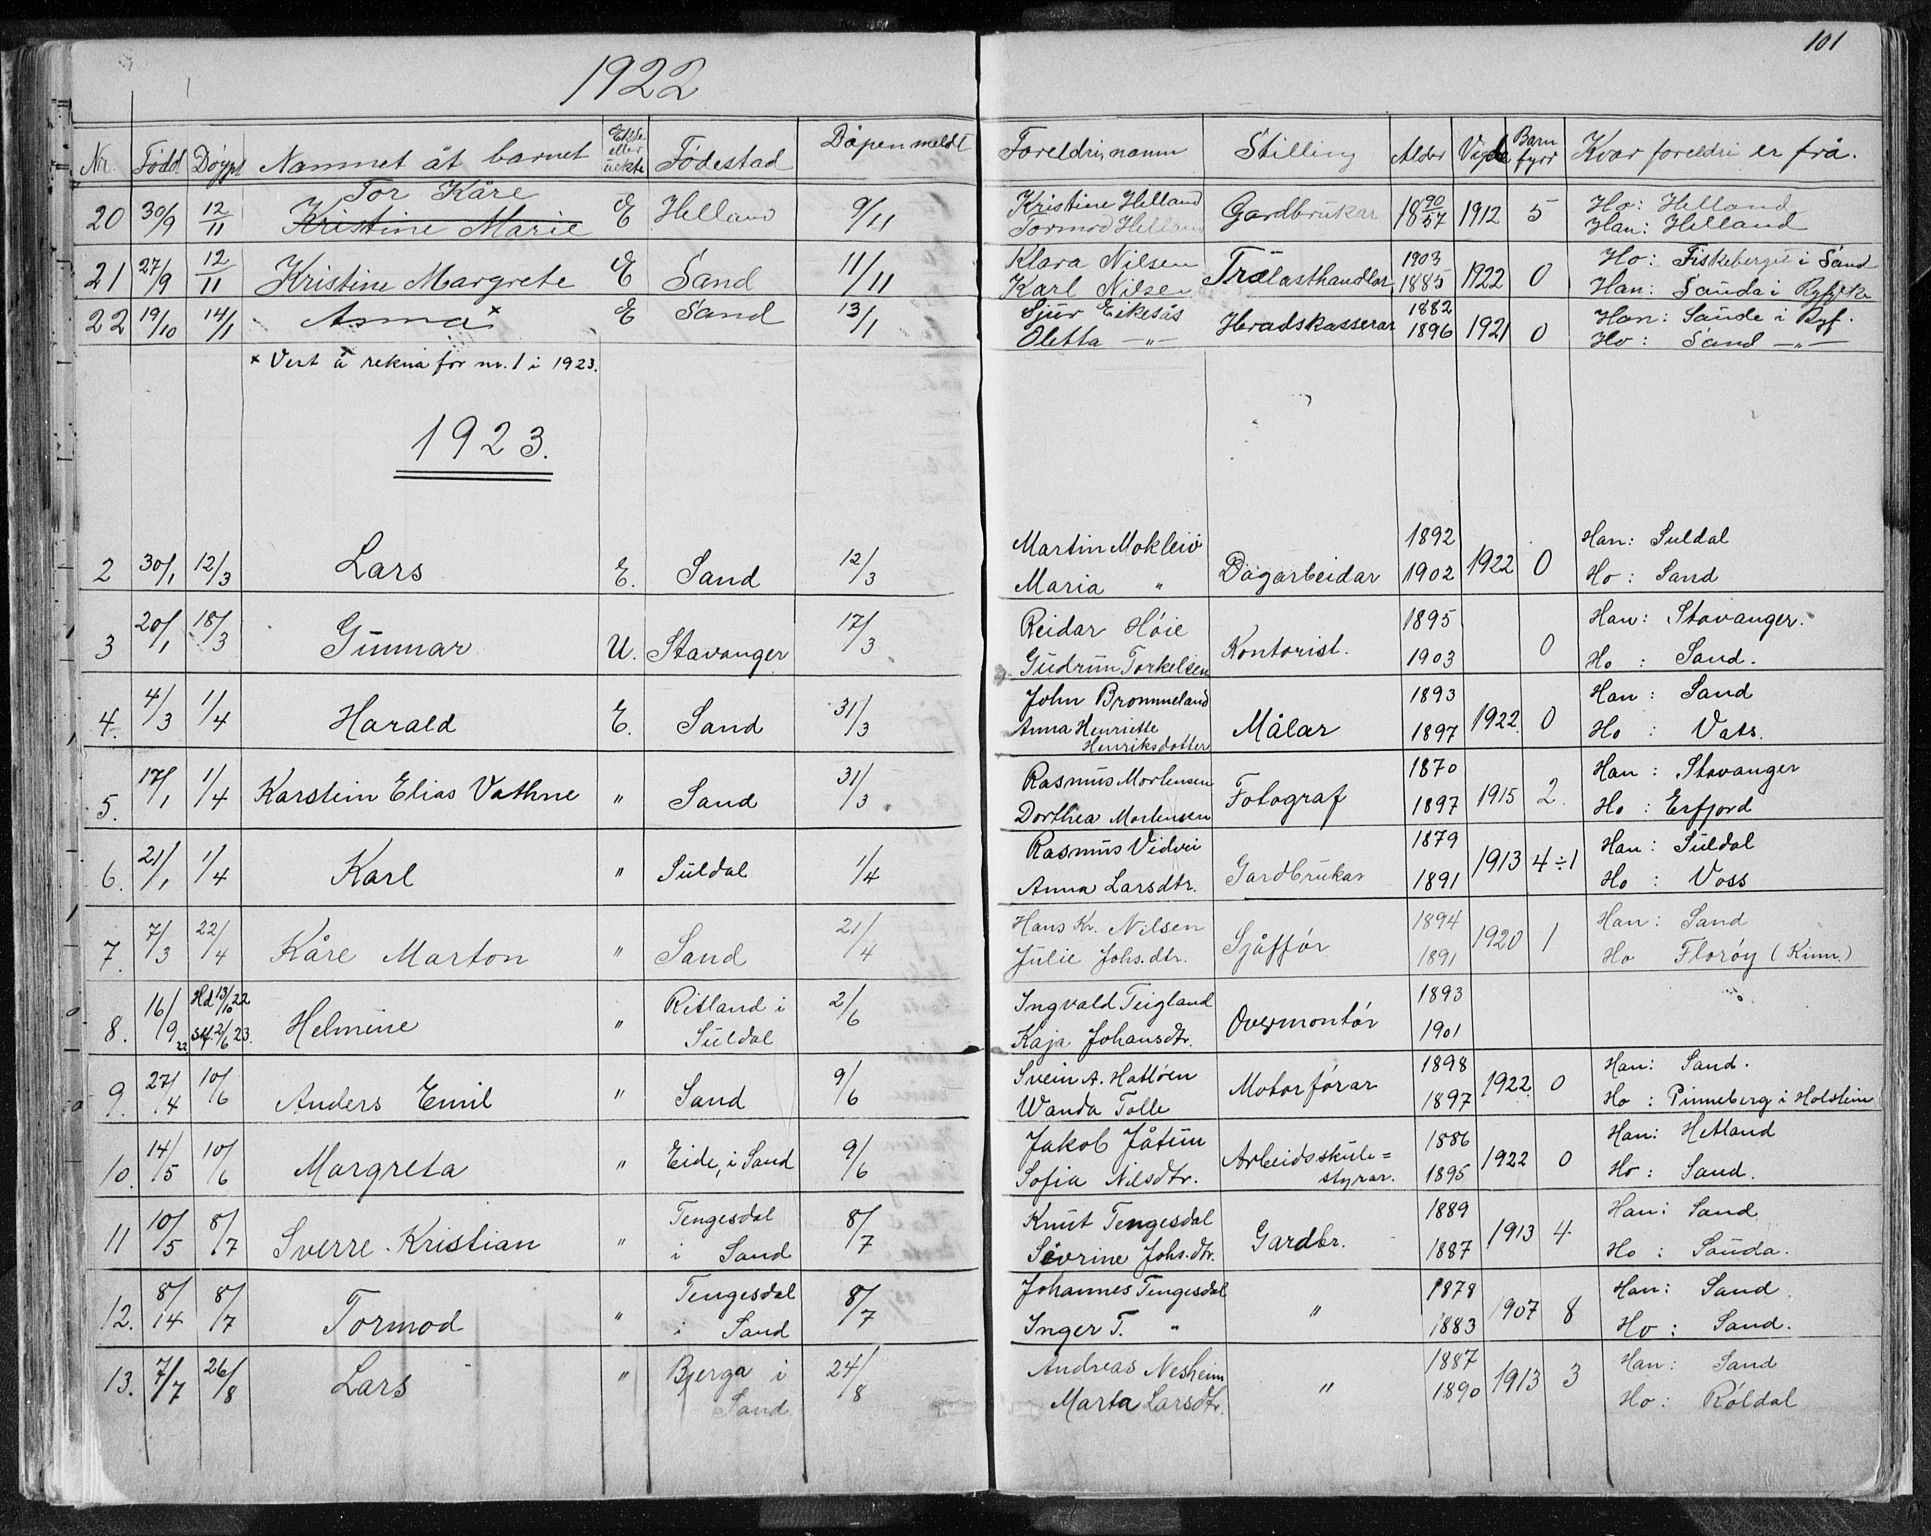 101
1922
Nr. Född Döypt Namnet åt barnet Ekte eller uekte Födestad Dåpen meldt Foreldri, namn Stilling Alder Vigde Barn fyrr Kvar foreldri er frå.
Tor Kåre
20 30/9 12/11 Kristine Marie E Helland 9/11 Kristine Helland Gardbrukar 1890 1912 5 Ho: Helland
Tormod Helland 57 Han: Helland
21 27/9 12/11 Kristine Margrete E Sand 11/11 Klara Nilsen Trælasthandlar 1903 1922 0 Ho: Fiskeberget i Sand
Karl Nilsen 1885 Han: Sauda i Ryfylke
22 19/10 14/1 Anna x E Sand 13/1 Sjur Eikesås Heradskasserar 1882 1921 0 Han: Saude i Ryf.
Oletta —„— 1896 Ho: Sand —„—
x Vert å rekna for nr. 1 i 1923.
1923.
2 30/1 12/3 Lars E. Sand 12/3 Martin Mokleiv Dagarbeidar 1892 1922 0 Han: Suldal
Maria „ 1902 Ho: Sand
3 20/1 18/3 Gunnar U. Stavanger 17/3 Reidar Høie Kontorist. 1895 0 Han: Stavanger.
Gudrun Torkelsen 1903 Ho: Sand.
4. 4/3 1/4 Harald E. Sand 31/3 John Brommeland Målar 1893 1922. 0 Han: Sand
Anna Henriette 1897 Ho: Vats.
Henriksdotter
5. 17/1 1/4 Karstein Elias Vathne „ Sand 31/3 Rasmus Mortensen Fotograf 1870 1915 2. Han: Stavanger
Dorthea Mortensen 1897 Ho: Erfjord
6. 21/1 1/4 Karl „ Suldal 1/4 Rasmus Vidvei Gardbrukar 1879 1913 4÷1 Han: Suldal
Anna Larsdtr. 1891 Ho: Voss
7. 7/3 22/4 Kåre Marton „ Sand 21/4 Hans Kr. Nilsen Sjåffør 1894 1920 1 Han: Sand
Julie Johs.dtr. 1891 Ho Florøy (Kinn.)
8. 16/9 22 Hd 13/10 22 Helmine „ Ritland i 2/6 Ingvald Teigland Overmontør 1893
Stf. 2/6 23. Suldal Kaja Johansdtr. 1901
9. 27/4 10/6 Anders Emil „ Sand 9/6 Svein A. Hatløen Motorførar 1898 1922. 0 Han: Sand.
Wanda Tolle 1897 Ho: Pinneberg i Holstein
10. 14/5 10/6 Margreta „ Eide, i Sand 9/6 Jakob Jåtun Arbeidsskule= 1886 1922 0 Han: Hetland
Sofia Nilsdtr. styrar. 1895 Ho: Sand.
11 10/5 8/7 Sverre Kristian „ Tengesdal 8/7 Knut Tengesdal Gardbr. 1889 1913 4. Han: Sand
i Sand Severine Johs.dtr. 1887 Ho: Sauda.
12. 8/14 8/7 Tormod „ Tengesdal 8/7 Johannes Tengesdal „ 1878 1907 8 Han: Sand
i Sand Inger T. „ 1883 Ho: Sand.
13. 7/7 26/8 Lars „ Bjerga i 24/8 Andreas Nesheim „ 1887 1913 3 Han: Sand
Sand Marta Larsdtr. 1890 Ho: Röldal